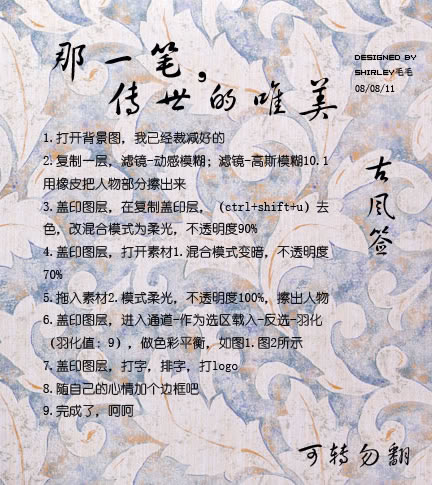 那一笔，
传世的唯美
DESIGNED BY
SHIRLEY毛毛
08/08/11
古风签
1.打开背景图，我已经裁减好的
2.复制一层，滤镜-动感模糊；滤镜-高斯模糊10.1
用橡皮把人物部分擦出来
3.盖印图层，在复制盖印层，（ctrl+shift+u）去
色，改混合模式为柔光，不透明度90%
4.盖印图层，打开素材1.混合模式变暗，不透明度
70%
5.拖入素材2.模式柔光，不透明度100%，擦出人物
6.盖印图层，进入通道-作为选区载入-反选-羽化
（羽化值：9），做色彩平衡，如图1.图2所示
7.盖印图层，打字，排字，打logo
8.随自己的心情加个边框吧
9.完成了，呵呵
可转勿翻